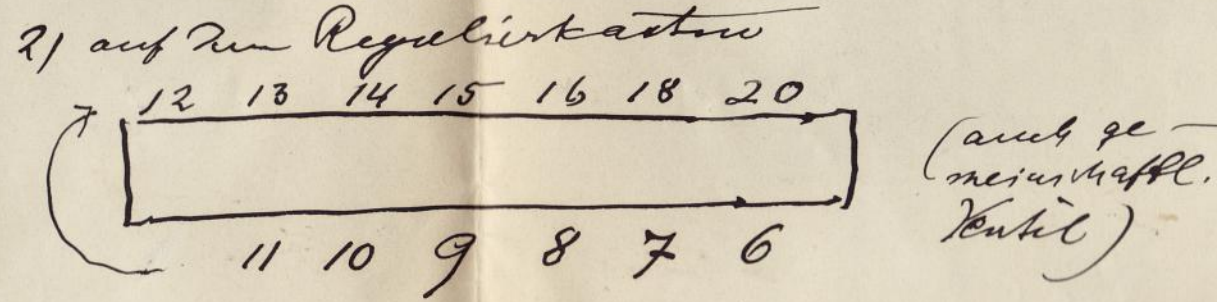 2) auf dem Regulierkasten
12 13 14 15 16 18 20
11 10 9 8 7 6
(auch ge-
meinschaftl.
Ventil)